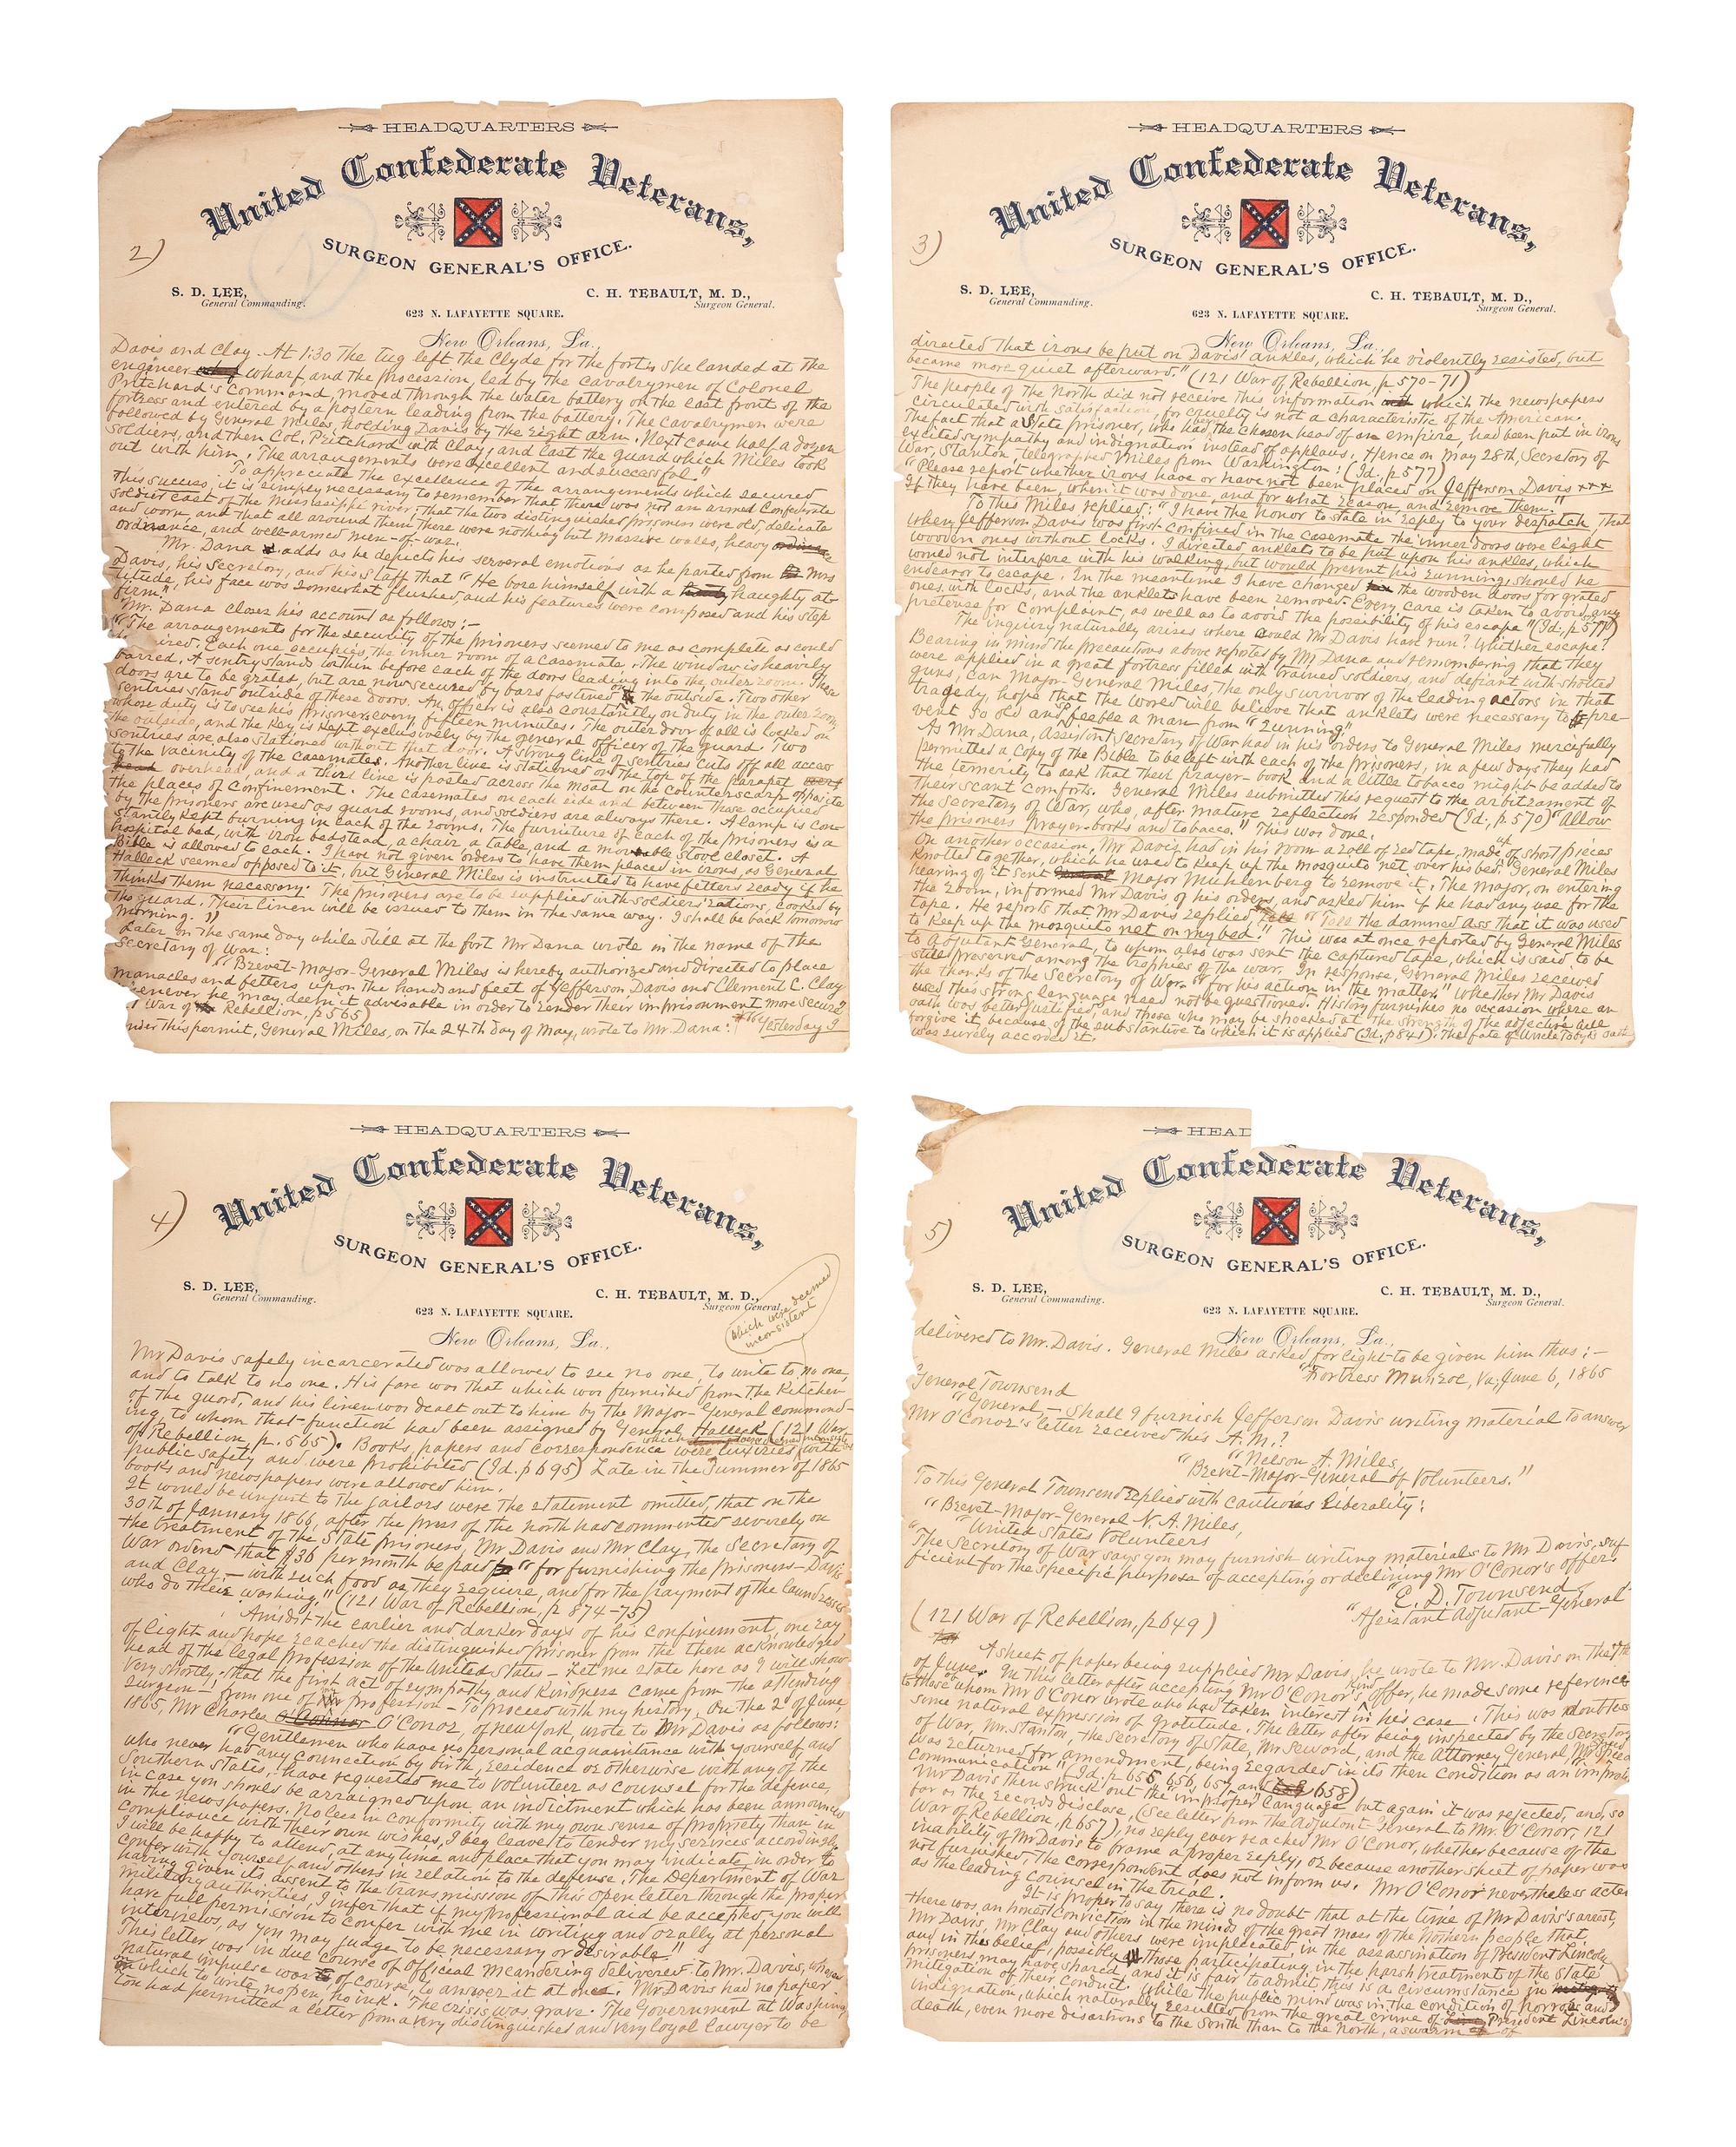 HEADQUARTERS
United Confederate Veterans,
SURGEON GENERAL'S OFFICE.
2)
S. D. LEE,
General Commanding.
C. H. TEBAULT, M. D.,
Surgeon General.
623 N. LAFAYETTE SQUARE.
New Orleans, La.,
Davis and Clay. At 1:30 the tug left the Clyde for the fort. She landed at the
engineer wharf, and the procession, led by the cavalrymen of Colonel
Pritchard's command, moved through the water battery on the east front of the
fortress and entered by a postern leading from the battery. The cavalrymen were
followed by General Miles, holding Davis by the right arm. Next came half a dozen
soldiers, and then Col. Pritchard with Clay, and last the guard which Miles took
out with him. The arrangements were excellent and successful."
To appreciate the excellence of the arrangements which secured
this success, it is simply necessary to remember that there was not an armed Confederate
soldier east of the Mississippi river, that the two distinguished prisoners were old, delicate
and worn, and that all around them there were nothing but massive walls, heavy
ordnance, and well-armed men-of-war.
Mr. Dana adds as he depicts his several emotions as he parted from Mrs
Davis, his Secretary, and his staff that "He bore himself with a haughty at-
titude, his face was somewhat flushed, and his features were composed and his step
firm."
Mr. Dana closes his account as follows:-
"The arrangements for the security of the prisoners seemed to me as complete as could
be desired. Each one occupies the inner room of a casemate. The window is heavily
barred. A sentry stands within before each of the doors leading into the outer room. These
doors are to be grated, but are now secured by bars fastened on the outside. Two other
sentries stand outside of these doors. An officer is also constantly on duty in the outer room,
whose duty is to see his prisoners every fifteen minutes. The outer door of all is locked on
the outside, and the key is kept exclusively by the general officer of the guard. Two
sentries are also stationed without that door. A strong line of sentries cuts off all access
to the vacinity of the casemates. Another line is stationed on the top of the parapet
overhead, and a third line is posted across the moat on the counterscarp opposite
the places of confinement. The casemates on each side and between those occupied
by the prisoners are used as guard rooms, and soldiers are always there. A lamp is con-
stantly kept burning in each of the rooms. The furniture of each of the prisoners is a
hospital bed, with iron bedstead, a chair, a table, and a movable stool closet. A
Bible is allowed to each. I have not given orders to have them placed in irons, as General
Halleck seemed opposed to it, but General Miles is instructed to have fetters ready if he
thinks them necessary. The prisoners are to be supplied with soldiers' rations, cooked by
the guard. Their linen will be issued to them in the same way. I shall be back tomorrow
morning."
Later on the same day while still at the fort Mr Dana wrote in the name of the
Secretary of War:
"Brevet-Major-General Miles is hereby authorized and directed to place
manacles and fetters upon the hands and feet of Jefferson Davis and Clement C. Clay
whenever he may deem it advisable in order to render their imprisonment more secure."
War of Rebellion, p 565)
Under this permit, General Miles, on the 24th day of May, wrote to Mr Dana: "Yesterday I
HEADQUARTERS
United Confederate Veterans,
SURGEON GENERAL'S OFFICE.
3)
S. D. LEE,
General Commanding.
C. H. TEBAULT, M. D.,
Surgeon General.
623 N. LAFAYETTE SQUARE.
New Orleans, La.,
directed that irons be put on Davis' ankles, which he violently resisted, but
became more quiet afterwards." (121 War of Rebellion, p 570-71)
The people of the North did not receive this information which the newspapers
circulated with satisfaction, for cruelty is not a characteristic of the American.
The fact that a State prisoner, who had the chosen head of an empire, had been put in irons
excited sympathy and indignation instead of applause. Hence on May 28th, Secretary of
War, Stanton, telegraphed Miles from Washington: (Id. p 577)
"Please report whether irons have or have not been placed on Jefferson Davis ***
If they have been, when it was done, and for what reason, and remove them."
To this Miles replied: "I have the honor to state in reply to your despatch that
when Jefferson Davis was first confined in the casemate the inner doors were light
wooden ones without locks. I directed anklets to be put upon his ankles, which
would not interfere with his walking, but would prevent his running, should he
endeavor to escape. In the meantime I have changed the wooden doors for grated
ones, with locks, and the anklets have been removed. Every care is taken to avoid any
pretense for complaint, as well as to avoid the possibility of his escape" (Id., p 577)
The inquiry naturally arises where could Mr Davis have run? Whither escape?
Bearing in mind the precautions above reported by Mr Dana and remembering that they
were applied in a great fortress filled with trained soldiers, and defiant with shotted
guns, can Major-General Miles, the only survivor of the leading actors in that
tragedy, hope that the world will believe that anklets were necessary to pre-
vent so old and feeble a man from "running."
As Mr Dana, Assistant Secretary of War had in his orders to General Miles mercifully
permitted a copy of the Bible to be left with each of the prisoners, in a few days they had
the temerity to ask that their prayer-book and a little tobacco might be added to
their scant comforts. General Miles submitted this request to the arbitrament of
the Secretary of War, who, after mature reflection responded (Id., p. 570) "Allow
the prisoners prayer-books and tobacco." This was done.
On another occasion, Mr Davis had in his room a roll of red tape, made of short pieces
knotted together, which he used to keep up the mosquito net over his bed. General Miles
hearing of it sent Major Muhlenberg to remove it. The Major, on entering
the room, informed Mr Davis of his orders, and asked him if he had any use for the
tape. He reports that Mr Davis replied, "Tell the damned ass that it was used
to keep up the mosquito net on my bed." This was at once reported by General Miles
to Adjutant General, to whom also was sent the captured tape, which is said to be
still preserved among the trophies of the war. In response, General Miles received
the thanks of the Secretary of War "for his action in the matter." Whether Mr Davis
used this strong language need not be questioned. History furnishes no occasion where an
oath was better justified, and those who may be shocked at the strength of the adjective will
forgive it, because of the substantive to which it is applied (Id., p 841). The fate of Uncle Toby's oath
was surely accorded it.
HEADQUARTERS
United Confederate Veterans,
SURGEON GENERAL'S OFFICE.
4)
S. D. LEE,
General Commanding.
C. H. TEBAULT, M. D.,
Surgeon General.
623 N. LAFAYETTE SQUARE.
New Orleans, La.,
which were deemed
inconsistent
Mr Davis safely incarcerated was allowed to see no one, to write to, no one,
and to talk to no one. His fare was that which was furnished from the kitchen
of the guard, and his linen was dealt out to him by the Major-General command-
ing, to whom that function had been assigned by General Halleck (121 War
of Rebellion p. 565). Books, papers and correspondence were luxuries with
public safety and were prohibited (Id. p 695) Late in the Summer of 1865
books and newspapers were allowed him.
It would be unjust to the jailors were the statement omitted, that on the
30th of January 1866, after the press of the north had commented severely on
the treatment of the State prisoners, Mr Davis and Mr Clay, the Secretary of
War ordered that $36 per month be paid "for furnishing the prisoners - Davis
and Clay - with such food as they require, and for the payment of the laundresses
who do their washing." (121 War of Rebellion, p 874-75)
Amidst the earlier and darker days of his confinement, one ray
of light and hope reached the distinguished prisoner from the then acknowledged
head of the legal profession of the United States - Let me state here as I will show
very shortly, that the first act of sympathy and kindness came from the attending
surgeon - from one of profession - To proceed with my history, On the 2d of June,
1865, Mr Charles O'Conor, of New York, wrote to Mr Davis as follows:
"Gentlemen who have no personal acquaintance with yourself, and
who never had any connection by birth, residence or otherwise with any of the
Southern States, have requested me to volunteer as counsel for the defence,
in case you should be arraigned upon an indictment which has been announced
in the newspapers. No less in conformity with my own sense of propriety than in
compliance with their own wishes, I beg leave to tender my services accordingly.
I will be happy to attend, at any time and place that you may indicate, in order to
confer with yourself and others in relation to the defense. The Department of War
having given its assent to the transmission of this open letter through the proper
military authorities, I infer that if my professional aid be accepted you will
have full permission to confer with me in writing and orally at personal
interviews, as you may judge to be necessary or desirable."
This letter was in due course of official meandering delivered to Mr Davis, whose
natural impulse was of course, to answer it at once. Mr Davis had no paper
on which to write, no pen, no ink. The crisis was grave. The Government at Washing-
ton had permitted a letter from a very distinguished and very loyal lawyer to be
HEAD
United Confederate Veterans,
SURGEON GENERAL'S OFFICE.
5)
S. D. LEE,
General Commanding.
C. H. TEBAULT, M. D.,
Surgeon General.
623 N. LAFAYETTE SQUARE.
New Orleans, La.,
delivered to Mr. Davis. General Miles asked for light to be given him thus:-
"Fortress Munroe, Va, June 6, 1865
General Townsend
"General - Shall I furnish Jefferson Davis writing material to answer
Mr O'Conor's letter received this A.M.?
"Nelson A. Miles,
"Brevet-Major-General of Volunteers."
To this General Townsend replied with cautious liberality:
"Brevet-Major-General N. A. Miles,
"United States Volunteers
"The Secretary of War says you may furnish writing materials to Mr Davis, suf-
ficient for the specific purpose of accepting or declining Mr O'Conor's offer.
"E. D. Townsend
"Assistant Adjutant-General"
(121 War of Rebellion, p 649)
A sheet of paper being supplied Mr Davis, he wrote to Mr. Davis on the 7th
of June. In this letter after accepting Mr O'Conor's kind offer, he made some reference
to those of whom Mr O'Conor wrote who had taken interest in his case. This was doubtless
some natural expression of gratitude. The letter after being inspected by the Secretary
of War, Mr. Stanton, the Secretary of State, Mr Seward, and the Attorney General, Mr Speed
was returned for amendment, being regarded in its then condition as an improper
communication" (Id. p 655, 656, 657 and 658)
Mr Davis then struck out the improper language but again it was rejected, and, so
far as the records disclose, (See letter from the Adjutant General to Mr. O'Conor, 121
War of Rebellion, p 657), no reply ever reached Mr O'Conor, whether because of the
inability of Mr Davis to frame a proper reply, or because another sheet of paper was
not furnished, the correspondent does not inform us. Mr O'Conor nevertheless acted
as the leading counsel in the trial.
It is proper to say there is no doubt that at the time of Mr Davis's arrest,
there was an honest conviction in the minds of the great mass of the Northern people that
Mr Davis, Mr Clay and others were implicated in the assassination of President Lincoln,
and in this belief, possibly those participating in the harsh treatment of the State
prisoners may have shared and it is fair to admit this is a circumstance in
mitigation of their conduct. While the public mind was in the condition of horror and
indignation, which naturally resulted from the great crime of President Lincoln's
death, even more disastrous to the South than to the North, a swarm of